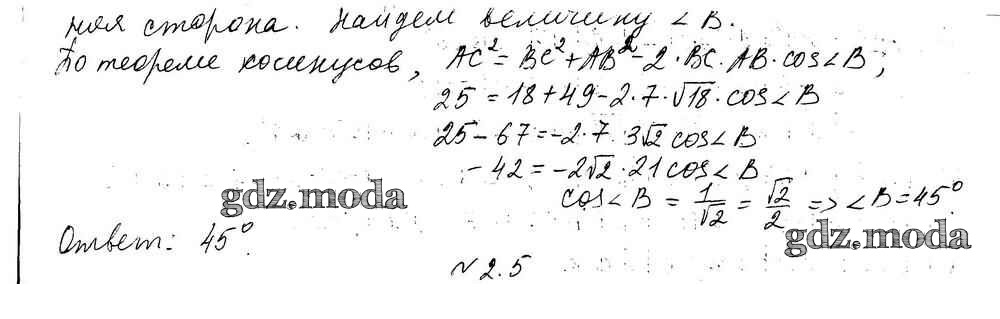 ная сторона. Найдем величину ∠B.
По теореме косинусов, AC² = BC² + AB² - 2·BC·AB·cos∠B;
25 = 18 + 49 - 2·7·√18·cos∠B
25 - 67 = -2·7·3√2 cos∠B
-42 = -2√2·21 cos∠B
gdz.moda
cos∠B = 1/√2 = √2/2 => ∠B = 45°
gdz.moda
Ответ: 45°.
№2.5